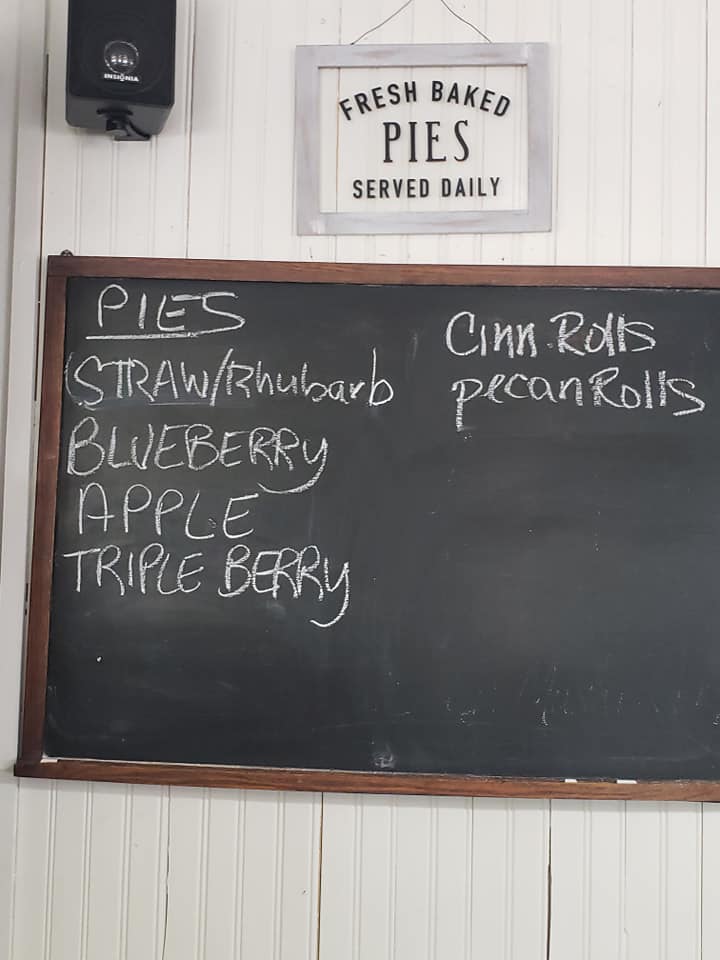 INSIGNIA
FRESH BAKED
PIES
SERVED DAILY
PIES
STRAW/Rhubarb
BLUEBERRY
APPLE
TRIPLE BERRY
Cinn. Rolls
pecan Rolls